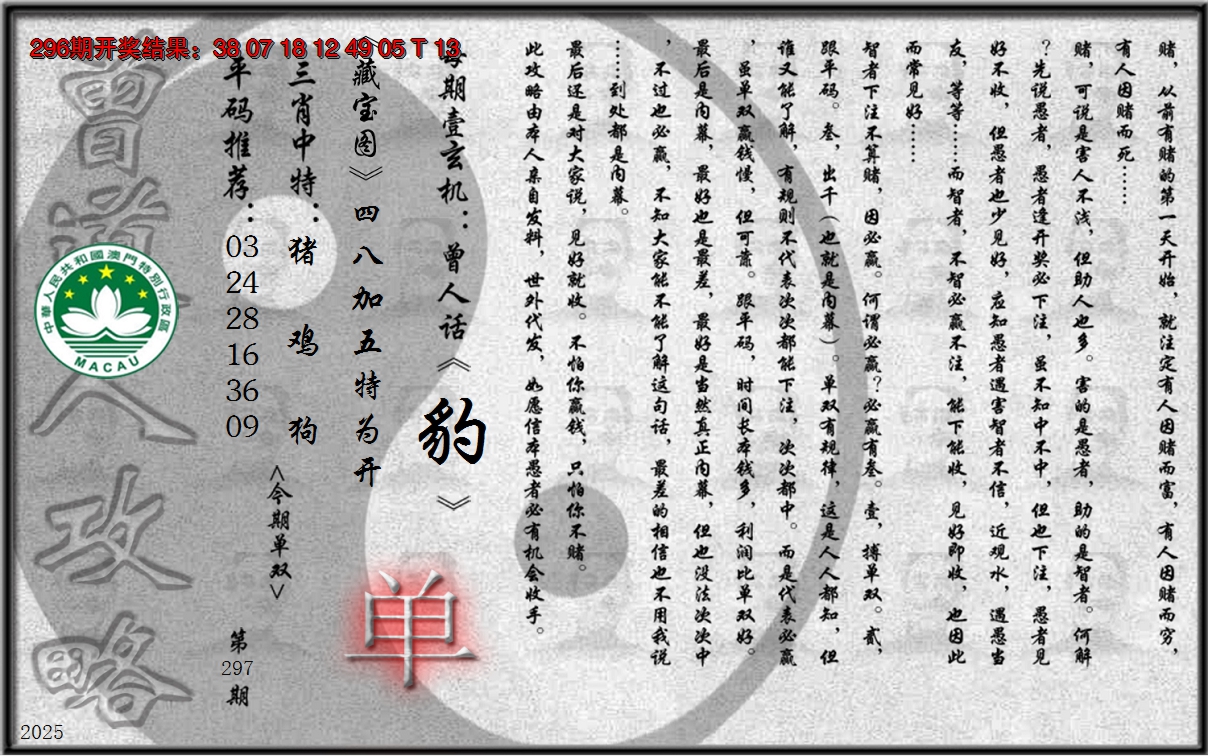 296期开奖结果：38 07 18 12 49 05 T 13
赌，从前有赌的第一天开始，就注定有人因赌而富，有人因赌而穷，
有人因赌而死……
赌，可说是害人不浅，但助人也多。害的是愚者，助的是智者。何解
？先说愚者，愚者逢开奖必下注，虽不知中不中，但也下注，愚者见
好不收，但愚者也少见好，应知愚者遇害智者不信，近观水，遇愚当
友，等等……而智者，不智必赢不注，能下能收，见好即收，也因此
而常见好……
智者下注不算赌，因必赢。何谓必赢？必赢有叁。壹，搏单双。贰，
跟平码。叁，出千（也就是内幕）。单双有规律，这是人人都知，但
谁又能了解，有规则不代表次次都能下注，次次都中。而是代表必赢
，虽单双赢钱慢，但可靠。跟平码，时间长本钱多，利润比单双好。
最后是内幕，最好也是最差，最好是当然真正内幕，但也没法次次中
，不过也必赢，不知大家能不能了解这句话，最差的相信也不用我说
……到处都是内幕。
最后还是对大家说，见好就收。不怕你赢钱，只怕你不赌。
此攻略由本人亲自发料，世外代发，如愿信本愚者必有机会收手。
每期壹玄机：曾人话《豹》
《藏宝图》四八加五特为开
单
三肖中特：猪 鸡 狗
<今期单双>
平码推荐：03 24 28 16 36 09
第297期
曾道人攻略
中華人民共和國澳門特別行政區
MACAU
2025